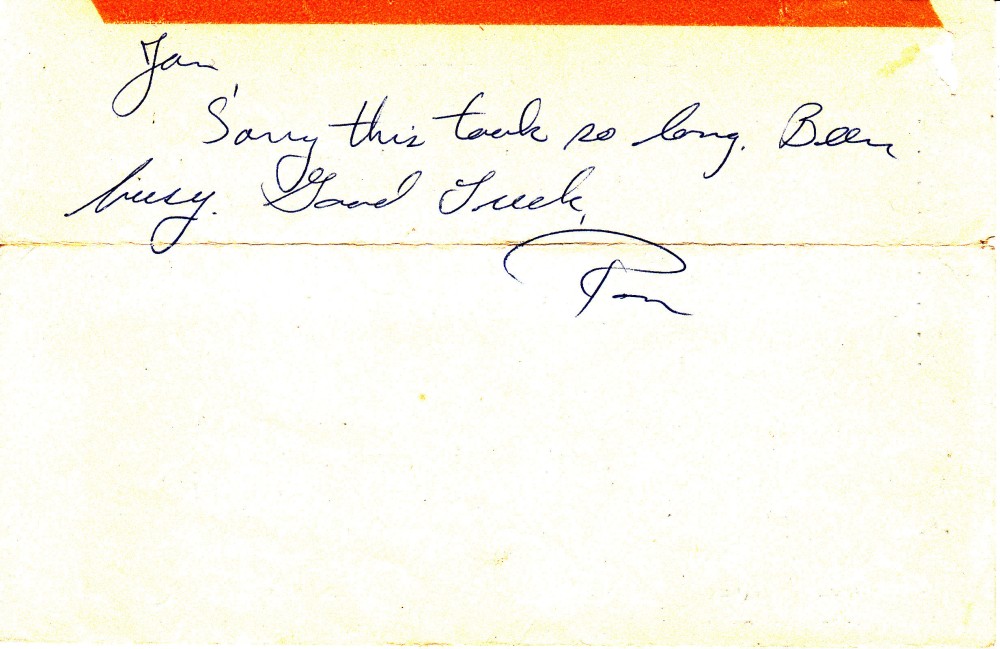 Jan
Sorry this took so long. Been
busy. Good Luck,